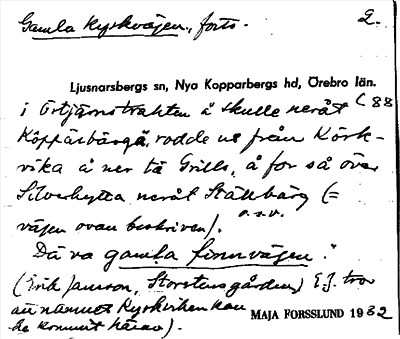 Gamla Kyrkvägen, forts. 2.
Ljusnarsbergs sn, Nya Kopparbergs hd, Örebro län.
i Örtjärnstrakten å skulle neråt C 88
Köppärbärgä, rodde ve från Körk-
vika å ner tä Grills, å for så över
Silverhytta neråt Ställbärg (=
vägen ovan beskriven). o.s.v.
Dä va gamla finnvägen."
(Erik Jansson, Storstensgården) E.J. tror
att namnet Kyrkviken kan
ha kommit härav).
MAJA FORSSLUND 1932